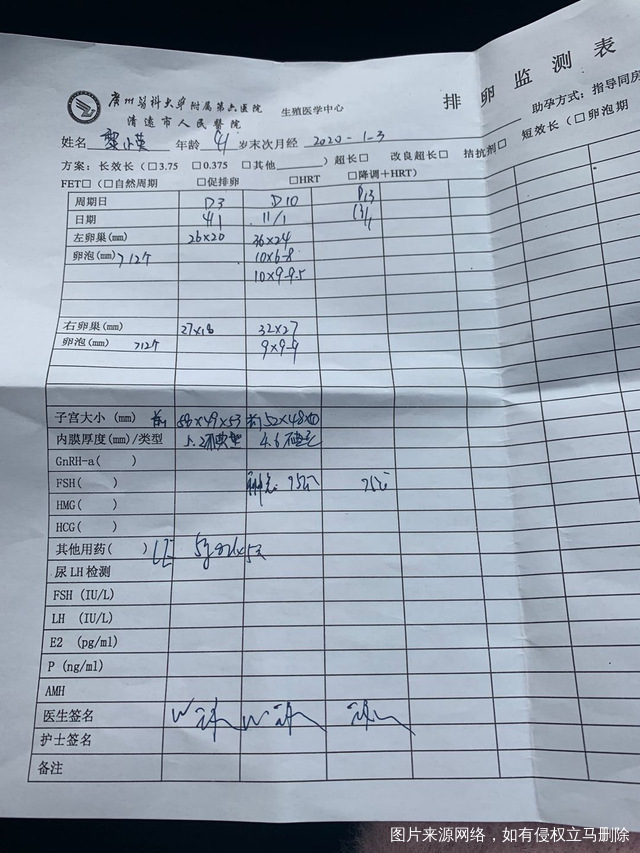 排卵监测表
广州医科大学附属第六医院
清远市人民医院
生殖医学中心
助孕方式：指导同房
姓名 年龄 41 岁末次月经 2020-1-3 短效长（□卵泡期
方案：长效长（□3.75 □0.375 □其他______）超长□ 改良超长□ 拮抗剂□
FET□（□自然周期 □促排卵 □HRT □降调+HRT）
周期日 D3 D10 D13
日期 4/1 11/1
左卵巢(mm) 26×20 36×24
卵泡(mm) >12个 10×6-8
10×9-9.5
右卵巢(mm) 27×18 32×27
卵泡(mm) >12个 9×9-9
子宫大小 (mm) 前 58×49×53 前 52×48×
内膜厚度(mm)/类型 5.2 4.6
GnRH-a( )
FSH( ) 75 75
HMG( )
HCG( )
其他用药( ) LE
尿LH检测
FSH (IU/L)
LH (IU/L)
E2 (pg/ml)
P (ng/ml)
AMH
医生签名
护士签名
备注
图片来源网络，如有侵权立马删除